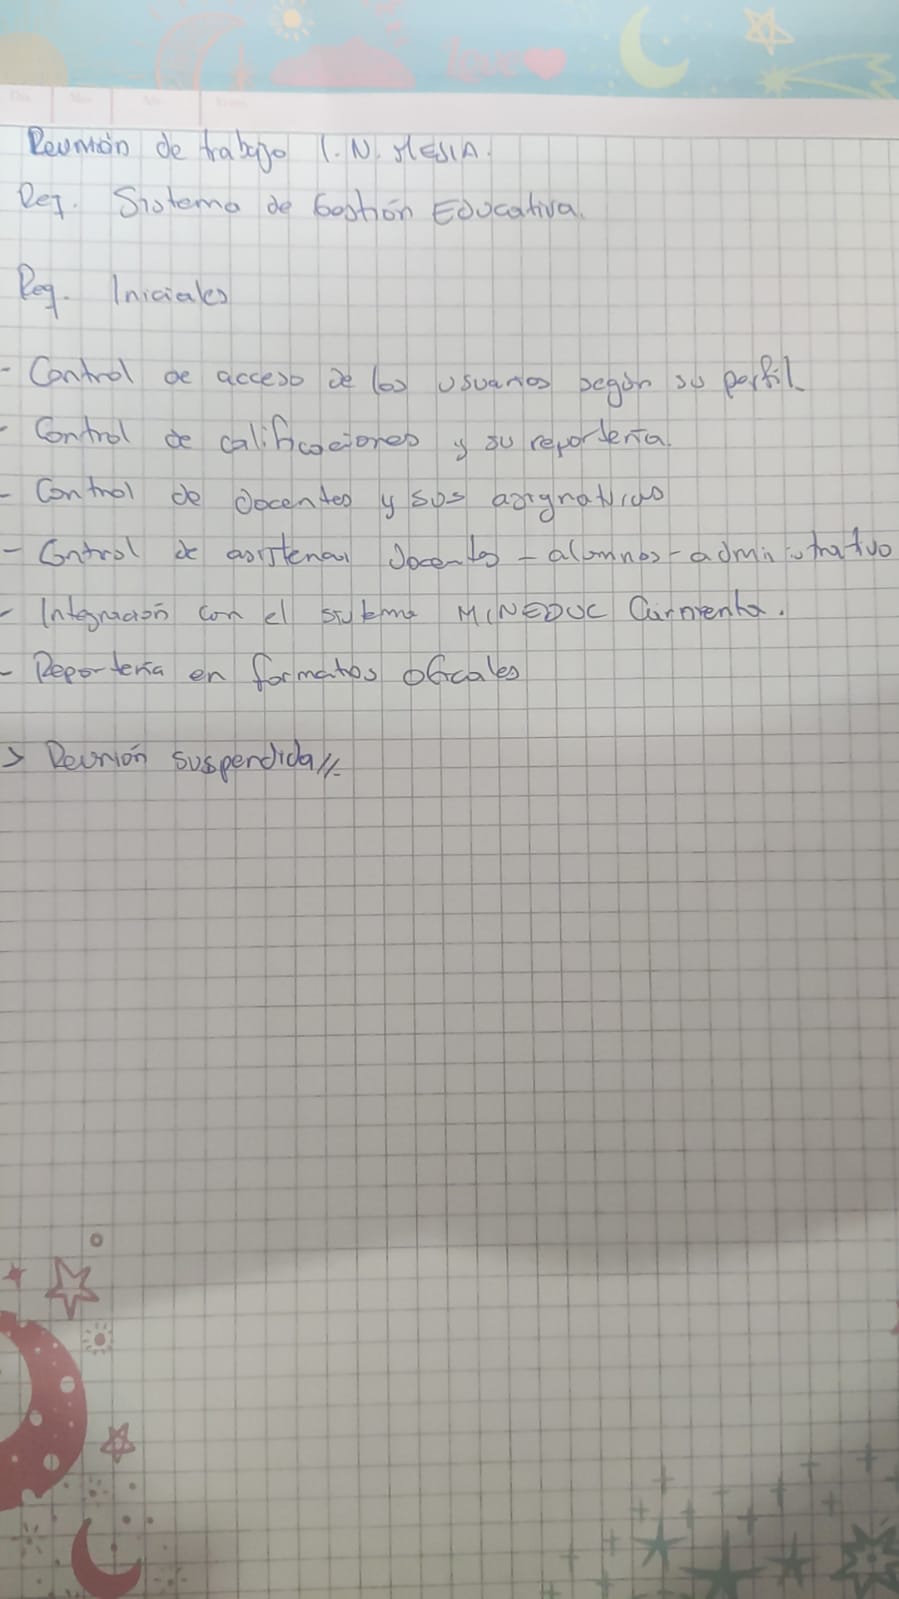 love
Reunión de trabajo I.N. MESIA.
Req. Sistema de Gestión Educativa.
Req. Iniciales
- Control de acceso de los usuarios según su perfil
- Control de calificaciones y su reportería.
- Control de docentes y sus asignaturas
- Control de asistencia docentes - alumnos - administrativo
- Integración con el sistema MINEDUC Carmenta.
- Reportería en formatos oficiales
> Reunión suspendida //-